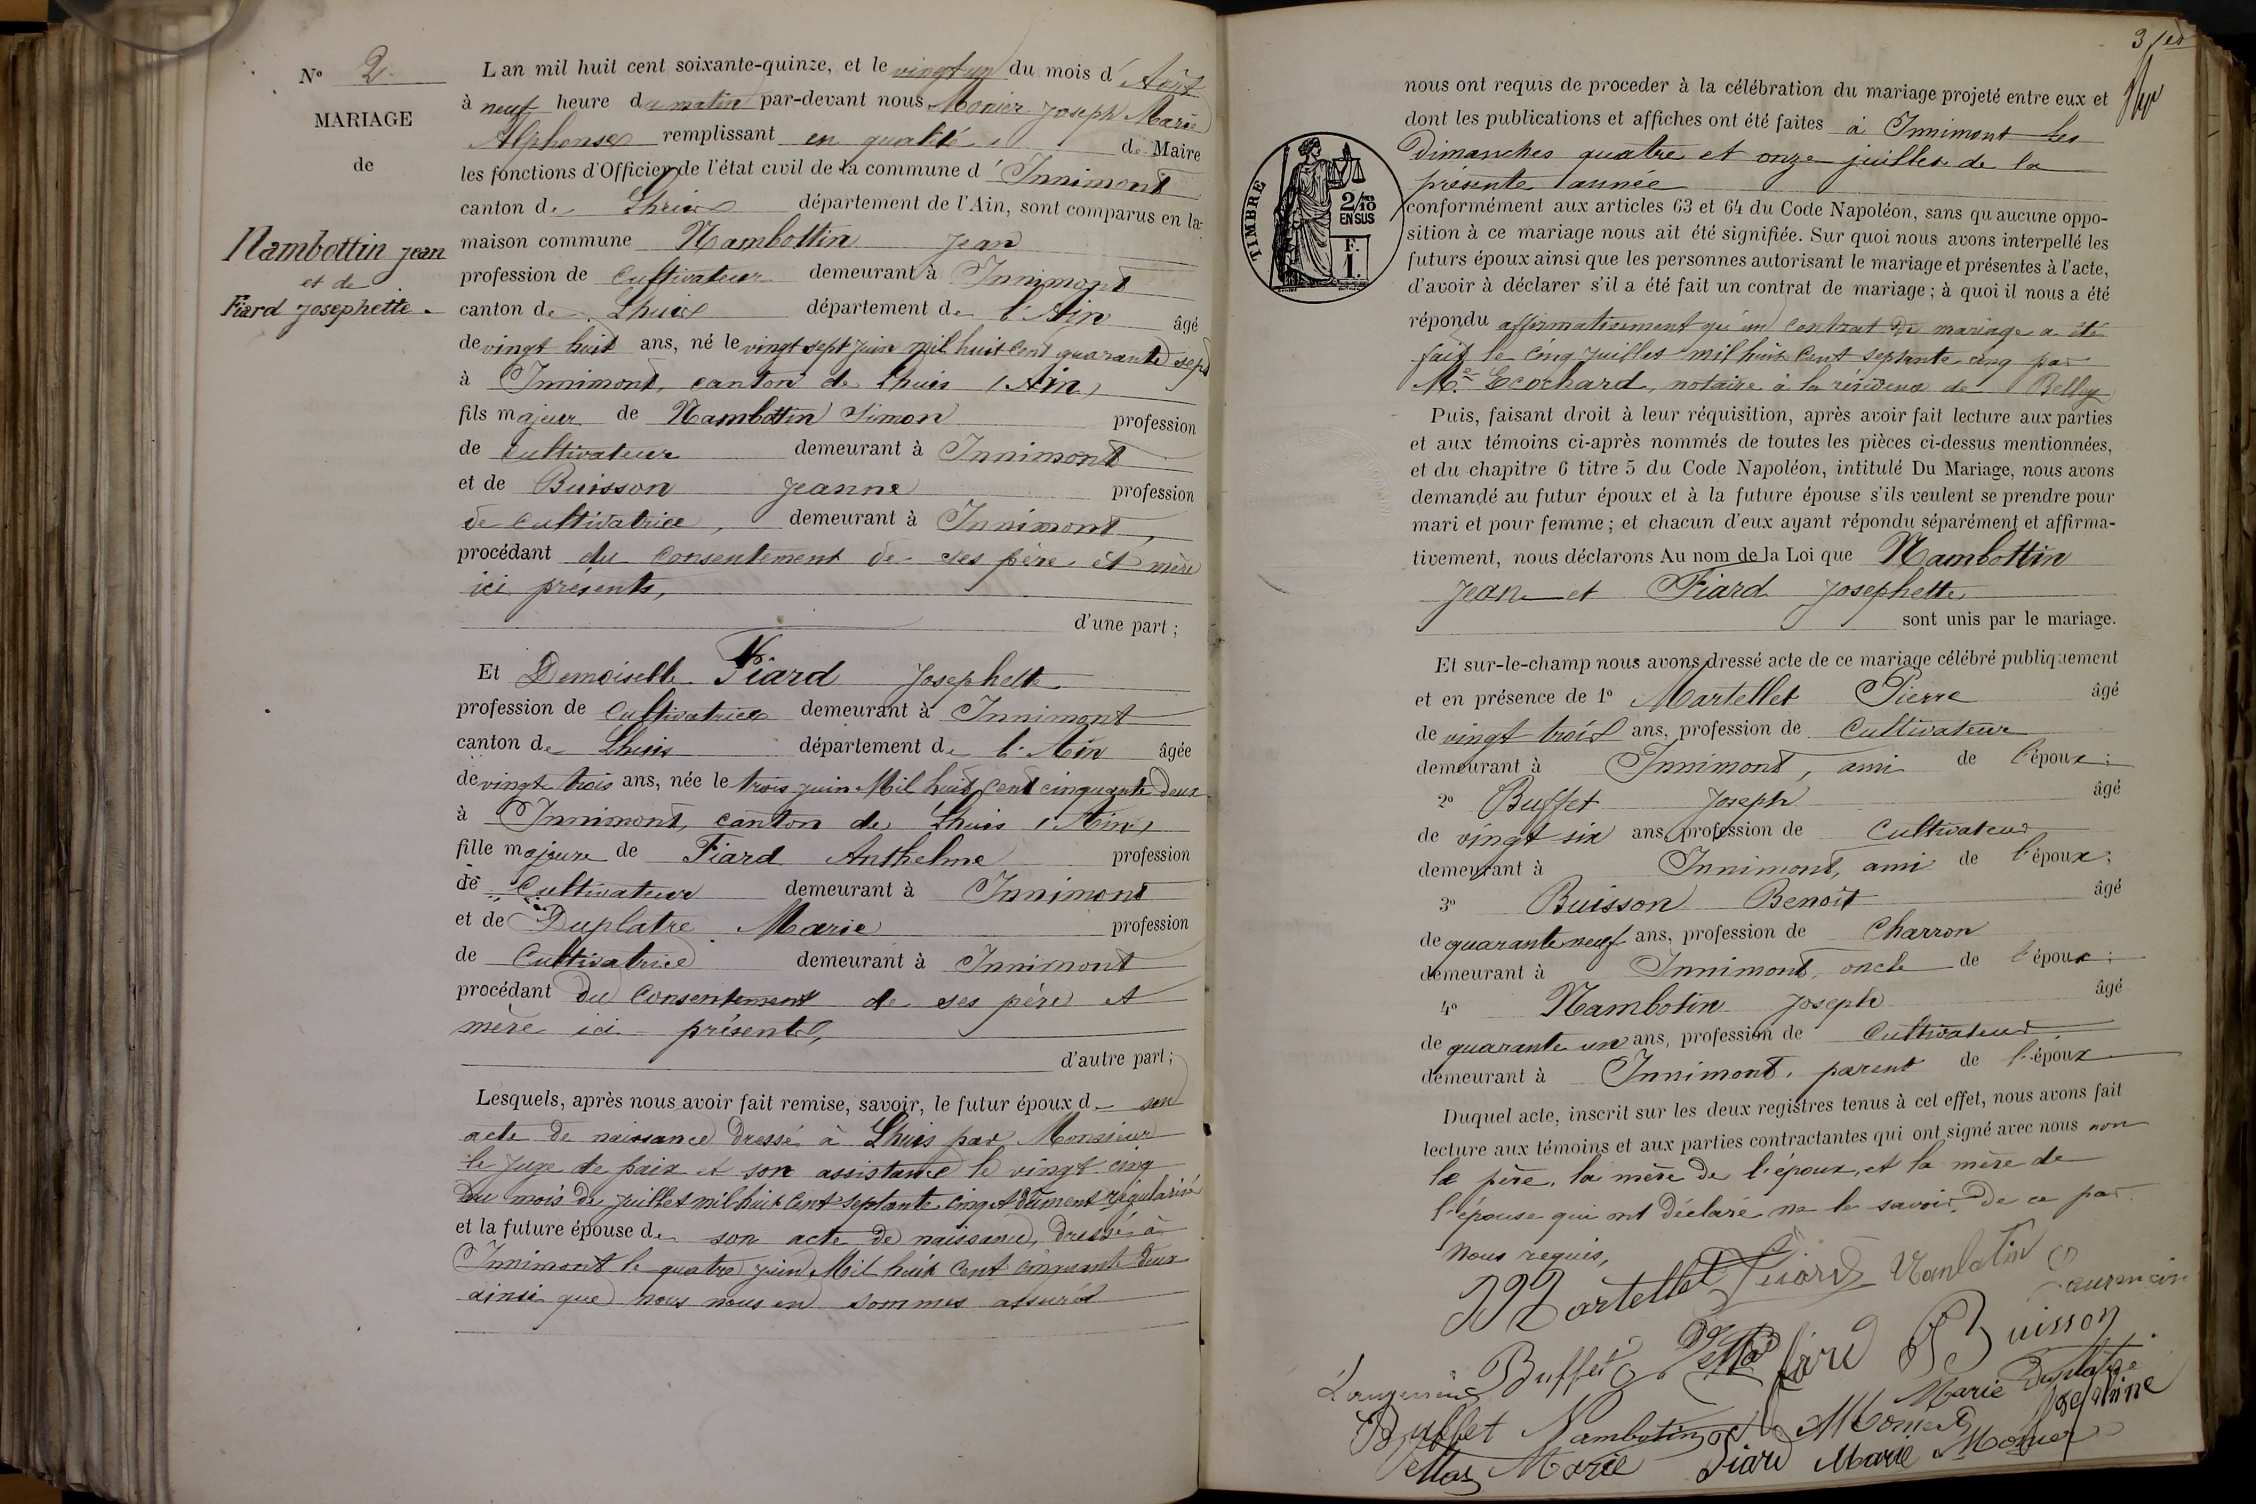 Nº 2
MARIAGE
de
Nambottin Jean
et de
Fiard Josephette.
L'an mil huit cent soixante-quinze, et le vingt un du mois d'Août
à neuf heure du matin par-devant nous Monier Joseph Marie
Alphonse remplissant en qualité de Maire
les fonctions d'Officier de l'état civil de la commune d'Innimont
canton de Lhuis département de l'Ain, sont comparus en la
maison commune Nambottin Jean
profession de Cultivateur demeurant à Innimont
canton de Lhuis département de l'Ain âgé
de vingt huit ans, né le vingt sept juin mil huit cent quarante sept
à Innimont, canton de Lhuis (Ain)
fils majeur de Nambottin Simon profession
de Cultivateur demeurant à Innimont
et de Buisson Jeanne profession
de Cultivatrice, demeurant à Innimont,
procédant du consentement de ses père et mère
ici présents,
d'une part;
Et Demoiselle Fiard Josephette
profession de Cultivatrice demeurant à Innimont
canton de Lhuis département de l'Ain âgée
de vingt trois ans, née le trois juin Mil huit cent cinquante deux
à Innimont, canton de Lhuis (Ain)
fille majeure de Fiard Anthelme profession
de Cultivateur demeurant à Innimont
et de Duplatre Marie profession
de Cultivatrice demeurant à Innimont
procédant du consentement de ses père et
mère ici présents,
d'autre part;
Lesquels, après nous avoir fait remise, savoir, le futur époux de son
acte de naissance dressé à Lhuis par Monsieur
le juge de paix et son assistance le vingt cinq
du mois de juillet mil huit cent septante cinq et dûment régularisé
et la future épouse de son acte de naissance, dressé à
Innimont le quatre juin Mil huit cent cinquante deux
ainsi que nous nous en sommes assurés
3
nous ont requis de proceder à la célébration du mariage projeté entre eux et
dont les publications et affiches ont été faites à Innimont les
Dimanches quatre et onze juillet de la
présente année
TIMBRE
2/10 EN SUS
F. I.
conformément aux articles 63 et 64 du Code Napoléon, sans qu'aucune oppo-
sition à ce mariage nous ait été signifiée. Sur quoi nous avons interpellé les
futurs époux ainsi que les personnes autorisant le mariage et présentes à l'acte,
d'avoir à déclarer s'il a été fait un contrat de mariage; à quoi il nous a été
répondu affirmativement qu'un contrat de mariage a été
fait le cinq juillet mil huit cent septante cinq par
Me Ecochard, notaire à la résidence de Belley
Puis, faisant droit à leur réquisition, après avoir fait lecture aux parties
et aux témoins ci-après nommés de toutes les pièces ci-dessus mentionnées,
et du chapitre 6 titre 5 du Code Napoléon, intitulé Du Mariage, nous avons
demandé au futur époux et à la future épouse s'ils veulent se prendre pour
mari et pour femme; et chacun d'eux ayant répondu séparément et affirma-
tivement, nous déclarons Au nom de la Loi que Nambottin
Jean et Fiard Josephette
sont unis par le mariage.
Et sur-le-champ nous avons dressé acte de ce mariage célébré publiquement
et en présence de 1º Martellet Pierre âgé
de vingt trois ans, profession de Cultivateur
demeurant à Innimont, ami de l'époux;
2º Buffet Joseph âgé
de vingt six ans, profession de Cultivateur
demeurant à Innimont, ami de l'époux;
3º Buisson Benoit âgé
de quarante neuf ans, profession de Charron
demeurant à Innimont, oncle de l'époux;
4º Nambotin Joseph âgé
de quarante un ans, profession de Cultivateur
demeurant à Innimont, parent de l'époux
Duquel acte, inscrit sur les deux registres tenus à cet effet, nous avons fait
lecture aux témoins et aux parties contractantes qui ont signé avec nous non
le père, la mère de l'époux, et la mère de
l'épouse qui ont déclaré ne le savoir, de ce par
nous requis,
Martellet Fiard Nanbatin
Buffet Fiard Buisson
Marie Duplâtre
Buffet Nambotin Monier Josephine
Marie Fiard Marie Monier